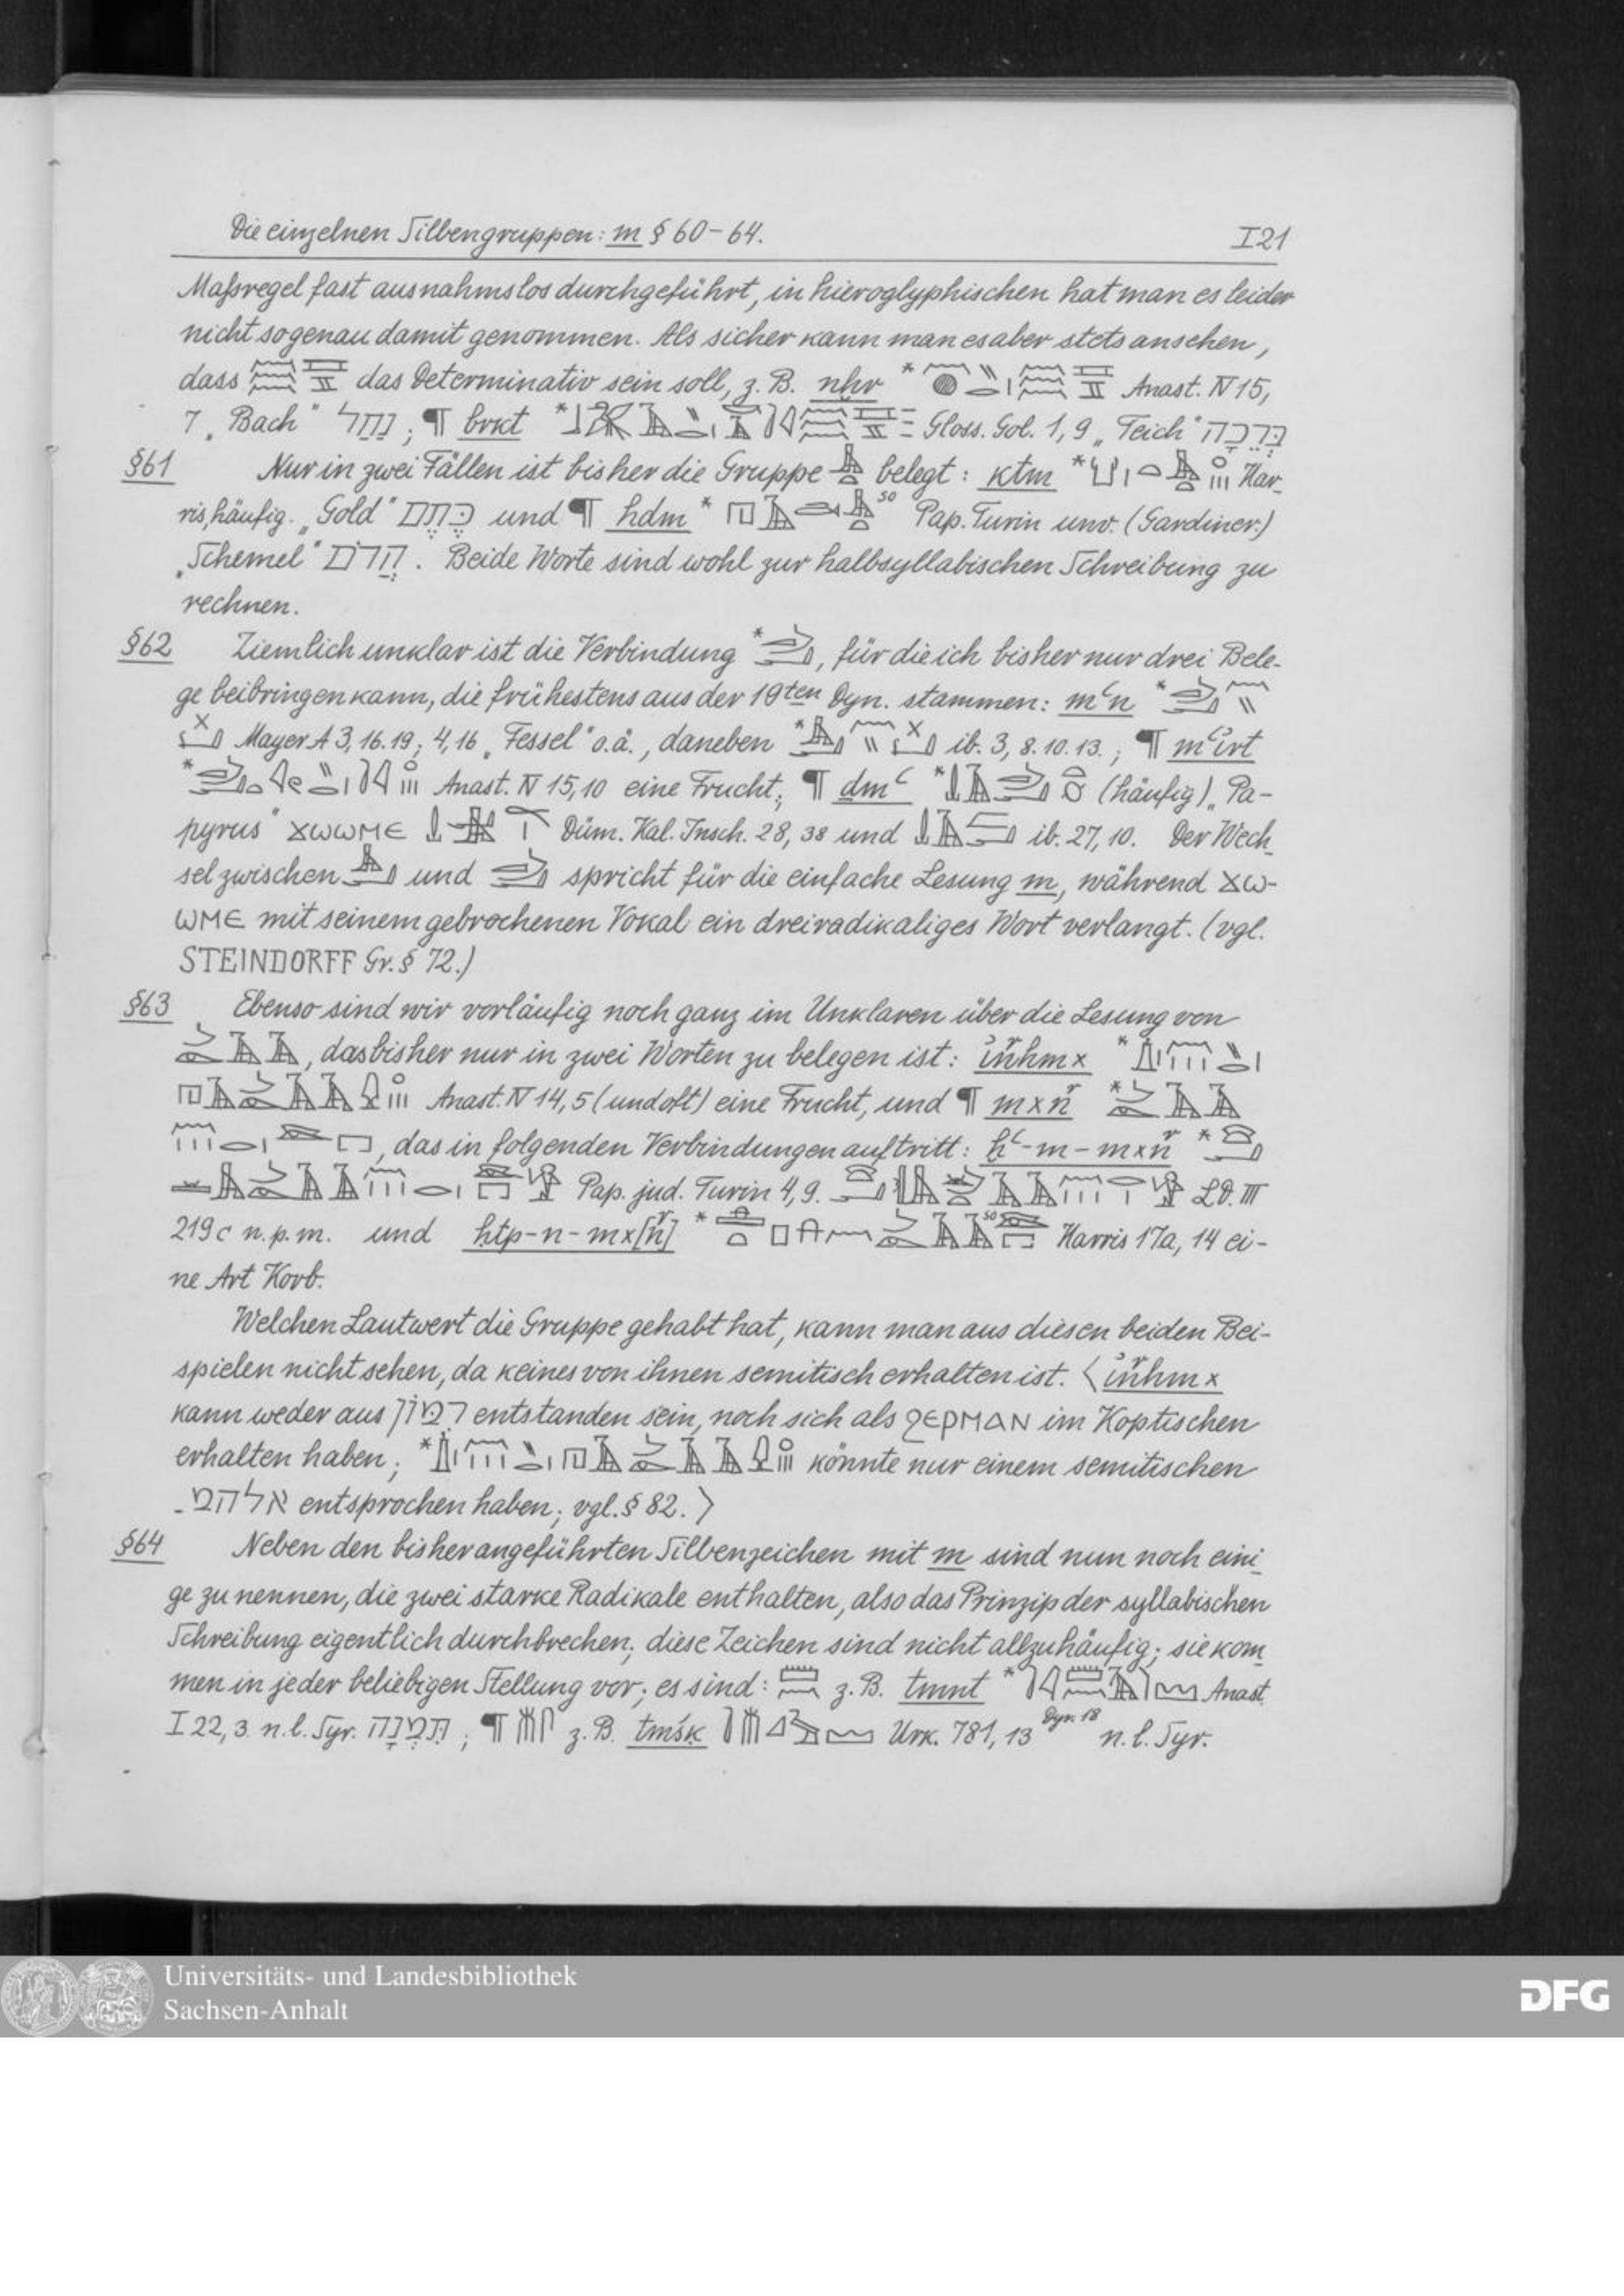 Die einzelnen Silbengruppen: m § 60-64. I 21
Maſsregel fast ausnahmslos durchgeführt, in hieroglyphischen hat man es leider
nicht so genau damit genommen. Als sicher kann man es aber stets ansehen,
dass das Determinativ sein soll, z. B. nḫr * Anast. IV 15,
7 „Bach“ נַחַל; ¶ brkt * Gloss. Gol. 1, 9 „Teich“ בְּרֵכָה
§61 Nur in zwei Fällen ist bisher die Gruppe belegt: ktm * Har-
ris, häufig. „Gold“ כֶּתֶם und ¶ hdm * so Pap. Turin unv. (Gardiner.)
„Schemel“ הֲדֹם. Beide Worte sind wohl zur halbsyllabischen Schreibung zu
rechnen.
§62 Ziemlich unklar ist die Verbindung *, für die ich bisher nur drei Bele-
ge beibringen kann, die frühestens aus der 19ten Dyn. stammen: mꜥn *
Mayer A 3, 16. 19; 4, 16 „Fessel“ o. ä., daneben * ib. 3, 8. 10. 13.; ¶ mꜥirt
* Anast. IV 15, 10 eine Frucht; ¶ ḏmꜥ * (häufig) „Pa-
pyrus“ ϫⲱⲱⲙⲉ Düm. Kal. Insch. 28, 38 und ib. 27, 10. Der Wech-
sel zwischen und spricht für die einfache Lesung m, während ϫⲱ-
ⲱⲙⲉ mit seinem gebrochenen Vokal ein dreiradikaliges Wort verlangt. (vgl.
STEINDORFF Gr. § 72.)
§63 Ebenso sind wir vorläufig noch ganz im Unklaren über die Lesung von
, das bisher nur in zwei Worten zu belegen ist: inhmx *
Anast. IV 14, 5 (und oft) eine Frucht, und ¶ mxn *
, das in folgenden Verbindungen auftritt: ḫꜥ-m-mxn *
Pap. jud. Turin 4, 9. LD. III
219 c n. p. m. und ḥtp-n-mx[n] * so Harris 17a, 14 ei-
ne Art Korb.
Welchen Lautwert die Gruppe gehabt hat, kann man aus diesen beiden Bei-
spielen nicht sehen, da keines von ihnen semitisch erhalten ist. ⟨inhmx
kann weder aus רמון entstanden sein, noch sich als ϩⲉⲣⲙⲁⲛ im Koptischen
erhalten haben; * könnte nur einem semitischen
אלהמ- entsprochen haben; vgl. § 82.⟩
§64 Neben den bisher angeführten Silbenzeichen mit m sind nun noch eini-
ge zu nennen, die zwei starke Radikale enthalten, also das Prinzip der syllabischen
Schreibung eigentlich durchbrechen; diese Zeichen sind nicht allzuhäufig; sie kom-
men in jeder beliebigen Stellung vor; es sind: z. B. tmnt * Anast.
I 22, 3. n. l. Syr. תִּמְנָה; ¶ z. B. tmśk Urk. 781, 13 Dyn. 18 n. l. Syr.
Universitäts- und Landesbibliothek
Sachsen-Anhalt
DFG